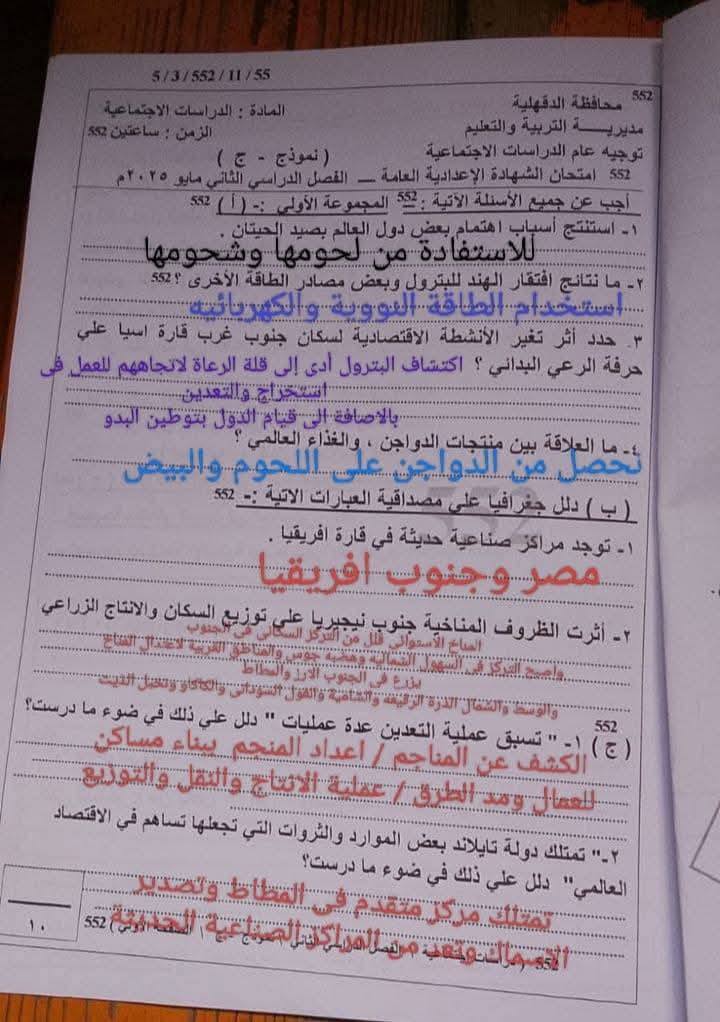 5 / 3 / 552 / 11 / 55
552 محافظة الدقهلية
المادة : الدراسات الاجتماعية
مديريـــة التربية والتعليم
الزمن : ساعتين 552
توجيه عام الدراسات الاجتماعية
( نموذج - ج )
552 امتحان الشهادة الإعدادية العامة ــ الفصل الدراسي الثاني مايو ٢٠٢٥م
أجب عن جميع الأسئلة الآتية : 552 المجموعة الأولي :- ( أ ) 552
١- استنتج أسباب اهتمام بعض دول العالم بصيد الحيتان .
للاستفادة من لحومها وشحومها
٢- ما نتائج افتقار الهند للبترول وبعض مصادر الطاقة الأخرى ؟ 552
استخدام الطاقة النووية والكهربائيه
٣. حدد أثر تغير الأنشطة الاقتصادية لسكان جنوب غرب قارة اسيا علي
حرفة الرعي البدائي ؟ اكتشاف البترول أدى إلى قلة الرعاة لاتجاههم للعمل فى
استخراج والتعدين
بالاصافة الى قيام الدول بتوطين البدو
٤- ما العلاقة بين منتجات الدواجن ، والغذاء العالمي ؟
نحصل من الدواجن على اللحوم والبيض
( ب ) دلل جغرافيا علي مصداقية العبارات الاتية :- 552
١- توجد مراكز صناعية حديثة في قارة افريقيا .
مصر وجنوب افريقيا
٢- أثرت الظروف المناخية جنوب نيجيريا علي توزيع السكان والانتاج الزراعي
المناخ الاستوائى قلل من التركز السكانى فى الجنوب
واصبح التركز فى السهول الشمالية وهضبه جوس والمناطق الغربية لاعتدال المناخ
يزرع فى الجنوب الارز والمطاط
والوسط والشمال الذرة الرفيعه والشامية والفول السودانى والكاكاو ونخيل الذيت
552
( ج ) ١- " تسبق عملية التعدين عدة عمليات " دلل علي ذلك في ضوء ما درست؟
الكشف عن المناجم / اعداد المنجم ببناء مساكن
للعمال ومد الطرق / عملية الانتاج والنقل والتوزيع
٢-" تمتلك دولة تايلاند بعض الموارد والثروات التي تجعلها تساهم في الاقتصاد
العالمي" دلل علي ذلك في ضوء ما درست؟
تمتلك مركز متقدم فى المطاط وتصدير
الاسماك وتعد من المراكز الصناعية الحديثة
١٠
552
552